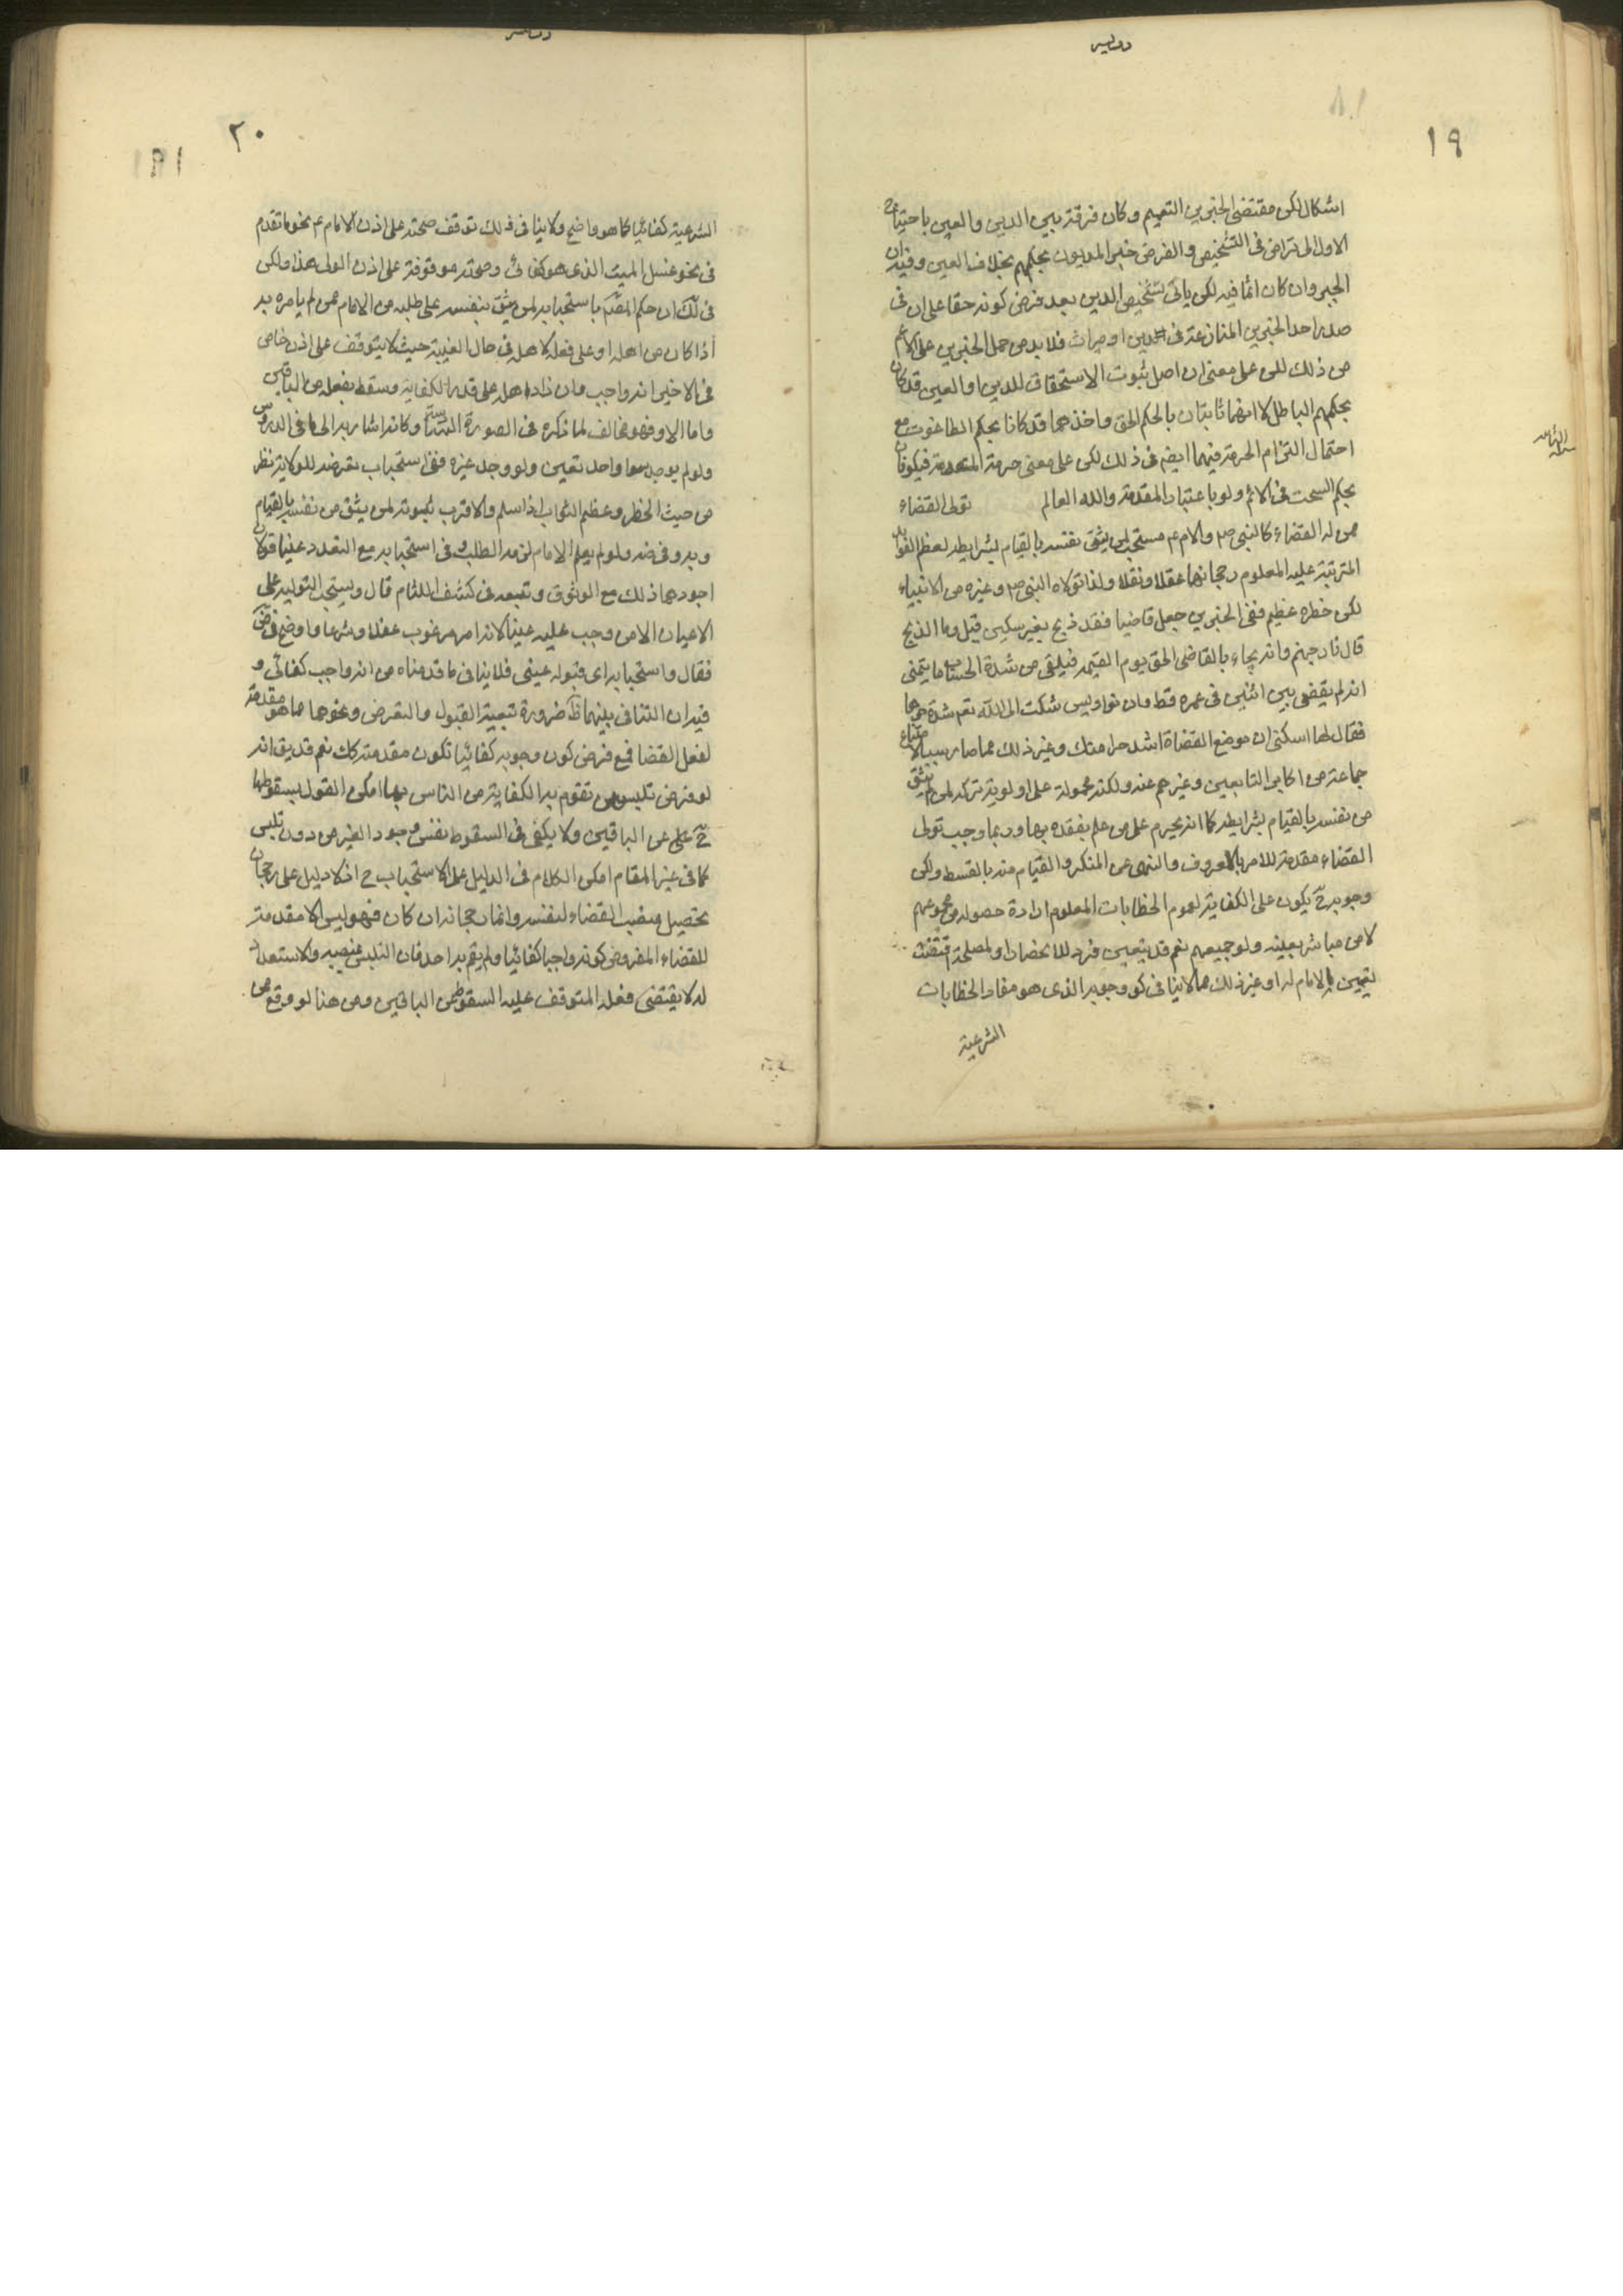 ١٩
اشكال لكن مقتضى الخبرين التعميم وكان فرقة بين الدين والعين باحتياج
الاول الى تراض فى التشخيص والفرض خبر المديون بحكمهم بخلاف العين وفيه ان
الجبر وان كان اثما فيه لكن ياتى تشخيص الدين بعد فرض كونه حقا على ان فى
صدر احد الخبرين المنازعة فى دين او ميراث فلابد من حمل الخبرين على الاعم
من ذلك لكن على معنى ان اصل ثبوت الاستحقاق للدين او العين قد كان
بحكمهم الباطل لا انهما ثابتان بالحكم الحق واخذهما قد كانا بحكم الطاغوت مع
احتمال التزام الحرمة فيهما ايضم فى ذلك لكن على معنى حرمة المقدمة فيكونان
بحكم السحت فى الاثم ولو باعتبار المقدمة والله العالم تولى القضاء
ممن له القضاء كالنبى ص والامام ع مستحب لمن يثق بنفسه بالقيام بشرايطه لعظم الفوائد
المترتبة عليه المعلوم رجحانها عقلا ونقلا ولذا تولاه النبى ص وغيره من الانبياء
لكن خطره عظيم ففى الخبرين جعل قاضيا فقد ذبح بغير سكين قيل وما الذبح
قال نار جهنم وانه يجاء بالقاضى الحق يوم القيمه فيلقى من شدة الحساب ما يتمنى
انه لم يقضى بين اثنين فى عمره قط وان نواويس شكت الى الله تعم شدة حرها
فقال لها اسكنى ان موضع القضاة اشد حرا منك وغير ذلك مما صار سببا لامتناع
جماعة من اكابر التابعين وغيرهم عنه ولكنه محمولة على اولوية تركه لمن لم يثق
من نفسه بالقيام بشرايطه كما انه يحرم على من علم بفقده بها وربما وجب تولى
القضاء مقدمة للامر بالمعروف والنهى عن المنكر والقيام منه بالقسط ولكن
وجوبه ح يكون على الكفاية لعموم الخطابات المعلوم ارادة حصوله من مجموعهم
لا من مباشر بعينه ولو جميعهم نعم قد يتعين فرد للانحصار او لمصلحة اقتضت
تعيين الامام له او غير ذلك مما لا ينافى كون وجوبه الذى هو مفاد الخطابات
الشرعية
٢٠
الشرعية كفائيا كما هو واضح ولا ينافى ذلك توقف صحته على اذن الامام ع نحو ما تقدم
فى نحو غسل الميت الذى هو كفائى وصحته موقوفة على اذن الولى هذا ولكن
فى لك ان حكم المصنم باستحبابه لمن يثق بنفسه على طلبه من الامام ممن لم يامره به
اذا كان من اهله او على فعله لاهله فى حال الغيبة حيث لا يتوقف على اذن خاص
فى الاخير انه واجب وان زاد اهله على قدر الكفاية وسقط بفعله من الباقين
واما الاول فهو مخالف لما ذكره فى الصورة السادسة وكانه اشار به الى ما فى الدروس
ولو لم يوجد سوى واحد تعين ولو وجد غيره ففى استحباب تعرضه للولاية نظر
من حيث الخطر وعظيم الثواب اذا سلم والاقرب ثبوته لمن يثق من نفسه بالقيام
وبه وفى ضه ولو لم يعلم الامام لزمه الطلب وفى استحبابه مع التعدد عينا قولان
اجودهما ذلك مع الوثوق وتبعه فى كشف اللثام قال ويستحب التولية على
الاعيان الا من وجب عليه عينا لانه امر مرغوب عقلا وشرعا واوضح فى ض
فقال واستحبابه اى قبوله عينى فلا ينافى ما قدمناه من انه واجب كفائى و
فيه ان التنافى بينهما ظ ضرورة تبعية القبول والتعرض ونحوهما مما هو مقدمة
لفعل القضا فمع فرض كون وجوبه كفائيا تكون مقدمته كك نعم قد يق انه
لو فرض تلبس من تقوم به الكفاية من الناس بها امكن القول بسقوطها
ح على عن الباقين ولا يكفى فى السقوط نفس وجود الغير من دون تلبس
كما فى غير المقام امكن الكلام فى الدليل على الاستحباب ح اذ لا دليل على رجحان
تحصيل منصب القضاء لنفسه وانما رجحانه ان كان فهو ليس الا مقدمة
للقضاء المفروض كونه واجبا كفائيا ولم يقم به احد فان التلبس بمنصبه والاستعداد
له لا يقتضى فعله المتوقف عليه السقوط عن الباقين ومن هنا لو وقع من